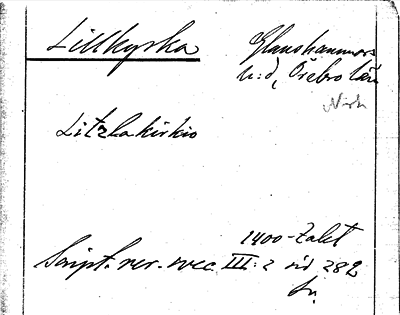 Lillkyrka
Glanshammars
h:d, Örebro län
Litzlakirkio
1400-talet
Script. rer. svec. III:2 sid 282